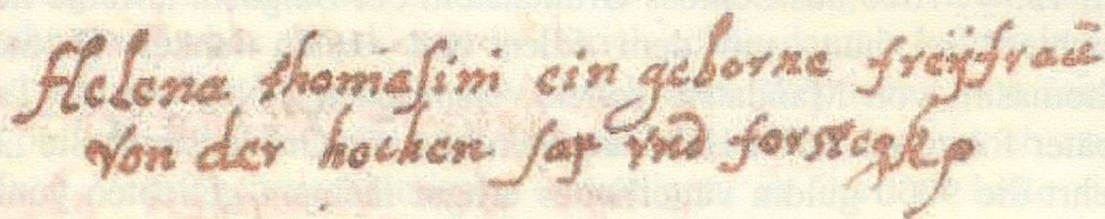 Helena thomasini ein geborne freÿfraū
von der hochen sax vnd forstegkh